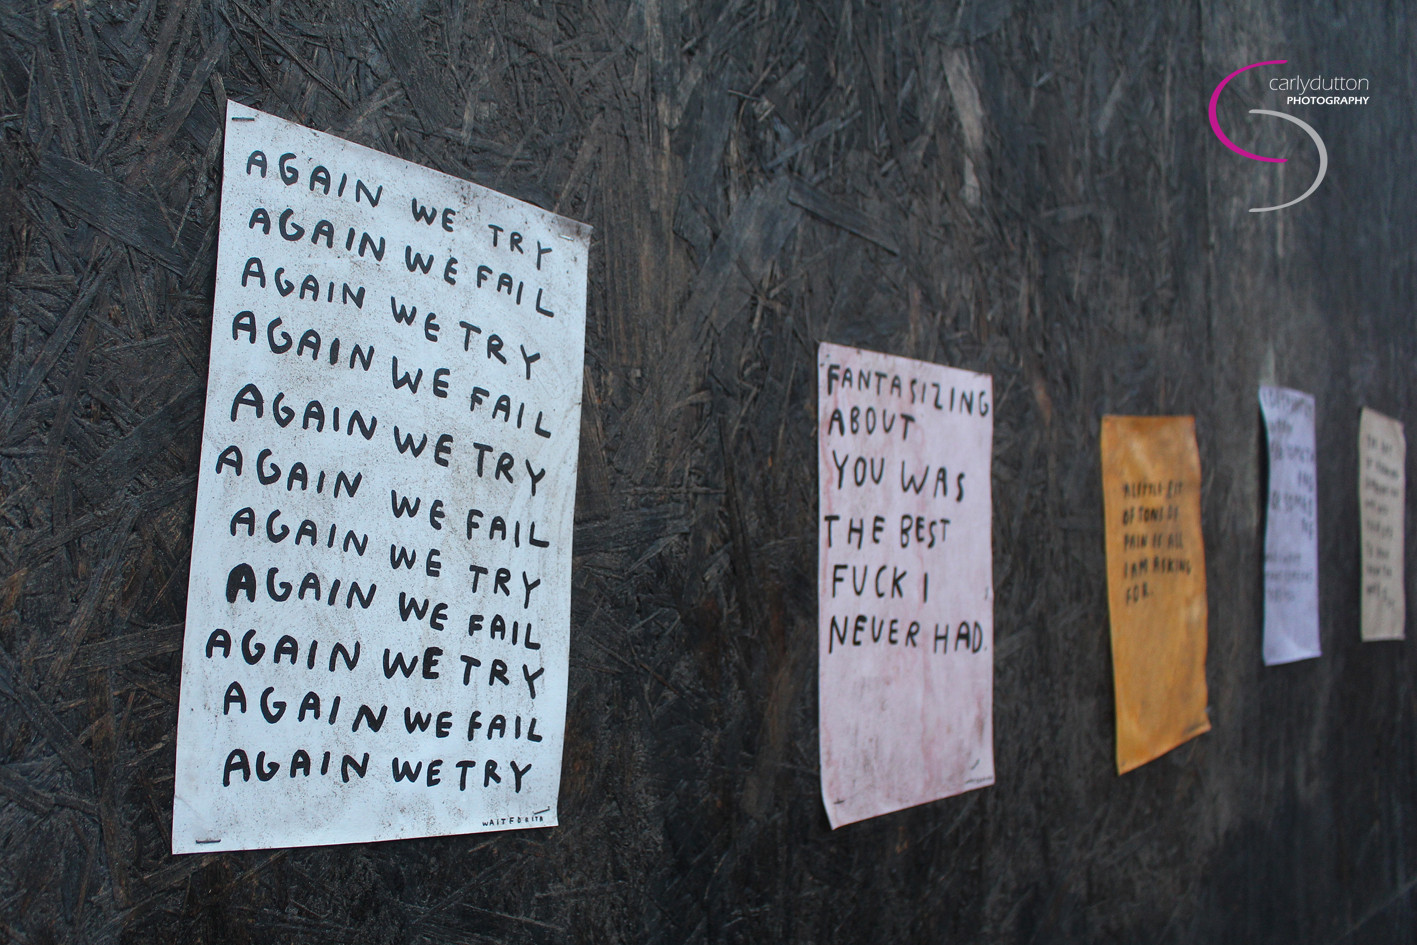 AGAIN WE TRY
AGAIN WE FAIL
AGAIN WE TRY
AGAIN WE FAIL
AGAIN WE TRY
AGAIN WE FAIL
AGAIN WE TRY
AGAIN WE FAIL
AGAIN WE TRY
AGAIN WE FAIL
AGAIN WE TRY
FANTASIZING
ABOUT
YOU WAS
THE BEST
FUCK I
NEVER HAD.
A LITTLE BIT
OF TONS OF
PAIN IS ALL
I AM ASKING
FOR.
carlydutton
PHOTOGRAPHY